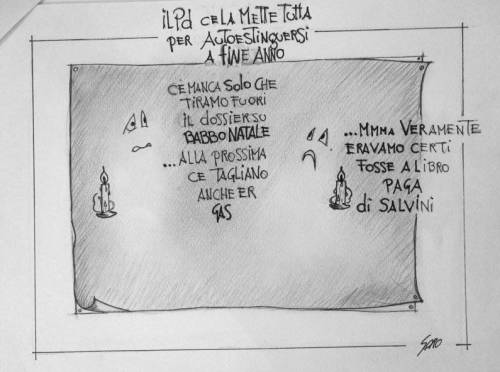 iL Pd CE LA METTE TUTTA
PER AUTOESTINGUERSI
A FINE ANNO
C'È MANCA SOLO CHE
TIRAMO FUORI
IL DOSSIER SU
BABBO NATALE
...ALLA PROSSIMA
CE TAGLIANO
ANCHE ER
GAS
...MMMA VERAMENTE
ERAVAMO CERTI
FOSSE A LIBRO
PAGA
di SALVINI